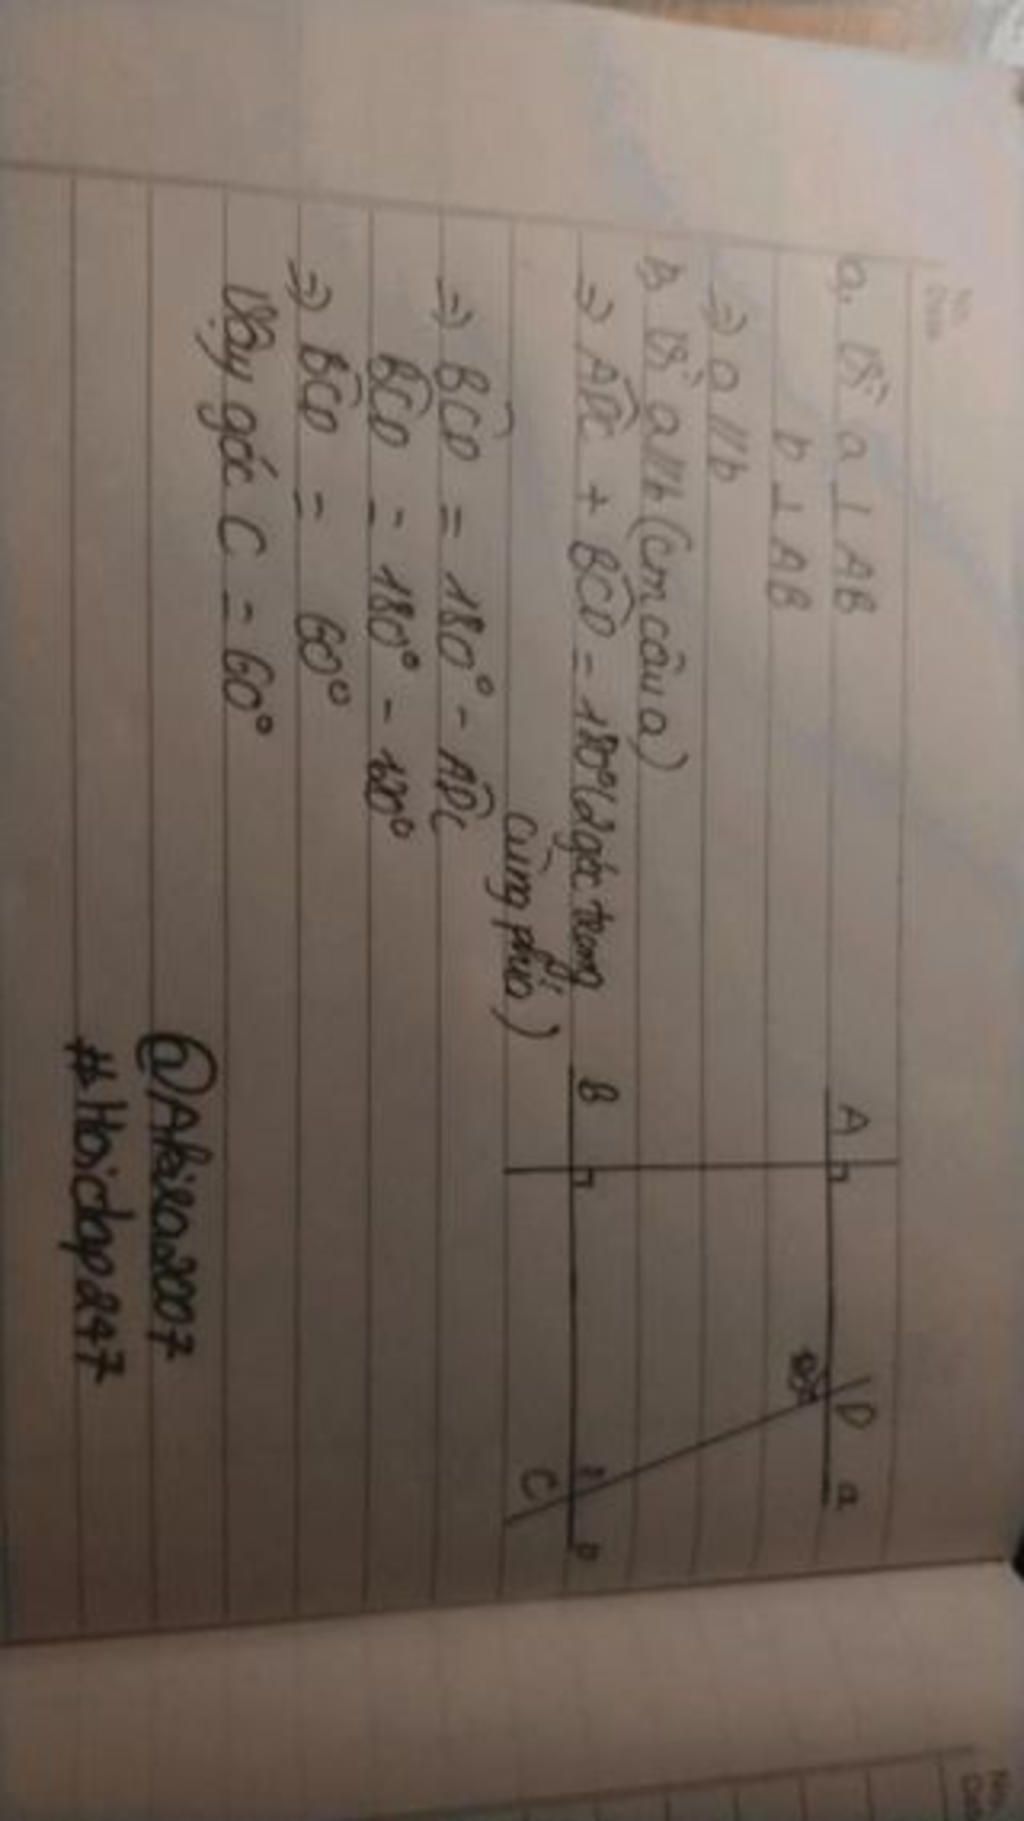 a, Vì a ⊥ AB
b ⊥ AB
=> a // b
b, Vì a // b (cm câu a)
=> ADC + BCD = 180° (2 góc trong
cùng phía)
=> BCD = 180° - ADC
BCD = 180° - 120°
=> BCD = 60°
Vậy góc C = 60°
@Akira2007
#Hoidap247
A
D
a
B
C